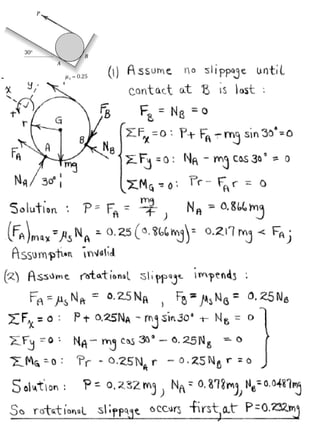 P
30°
A
B
μs = 0.25
(1) Assume no slippage until
contact at B is lost :
FB = NB = 0
x y
+
r G FB
FA A B NB
mg
NA 30°
ΣFx = 0 : P + FA - mg sin 30° = 0
ΣFy = 0 : NA - mg cos 30° = 0
ΣMG = 0 : Pr - FA r = 0
Solution : P = FA = mg/4 , NA = 0.866mg
(FA)max = μs NA = 0.25 (0.866mg) = 0.217 mg < FA ;
Assumption invalid
(2) Assume rotational slippage impends :
FA = μs NA = 0.25 NA , FB = μs NB = 0.25 NB
ΣFx = 0 : P + 0.25NA - mg sin 30° + NB = 0
ΣFy = 0 : NA - mg cos 30° - 0.25NB = 0
ΣMG = 0 : Pr - 0.25NA r - 0.25NB r = 0
Solution : P = 0.232 mg , NA = 0.878mg, NB = 0.0487mg
So rotational slippage occurs first, at P = 0.232mg